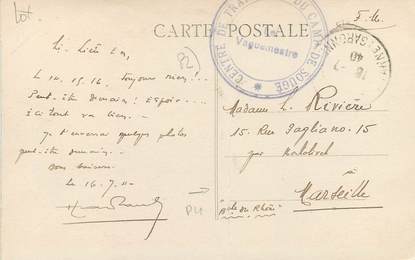 Lot
CARTE POSTALE
F.M.
CENTRE DE TRA DU CAMP DE SOUGE
Le
Vaguemestre
18-7
40
82
Le 14.15.16. Toujours rien!..
Peut-être Demain! Espoir...
Ici tout va bien.
Je t'enverrai quelques photos
peut-être demain.
Bons baisers
Le 16.7.40
P4
Madame L. Rivière
15. Rue Pagliano. 15
par
Marseille
(B. du Rhône)